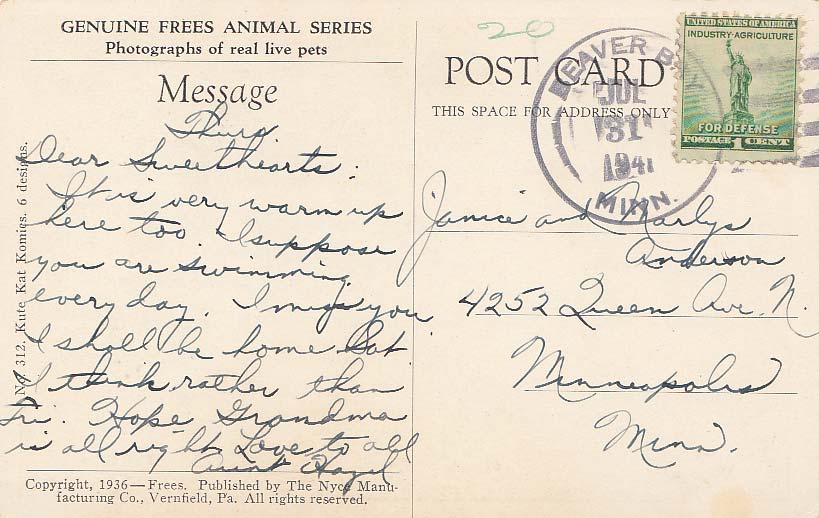 GENUINE FREES ANIMAL SERIES
Photographs of real live pets
Message
Thurs
Dear Sweethearts:
It is very warm up
here too. I suppose
you are swimming
every day. I miss you
I shall be home Sat
I think rather than
Fri. Hope Grandma
is all right Love to all
Aunt Hazel
Copyright, 1936—Frees. Published by The Nyce Manu-
facturing Co., Vernfield, Pa. All rights reserved.
No. 312. Kute Kat Komics. 6 designs.
20
POST CARD
THIS SPACE FOR ADDRESS ONLY
BEAVER B
JUL
31
1941
MINN.
UNITED STATES OF AMERICA
INDUSTRY·AGRICULTURE
FOR DEFENSE
POSTAGE 1 CENT
Janice and Marlys
Anderson
4252 Queen Ave. N.
Minneapolis
Minn.